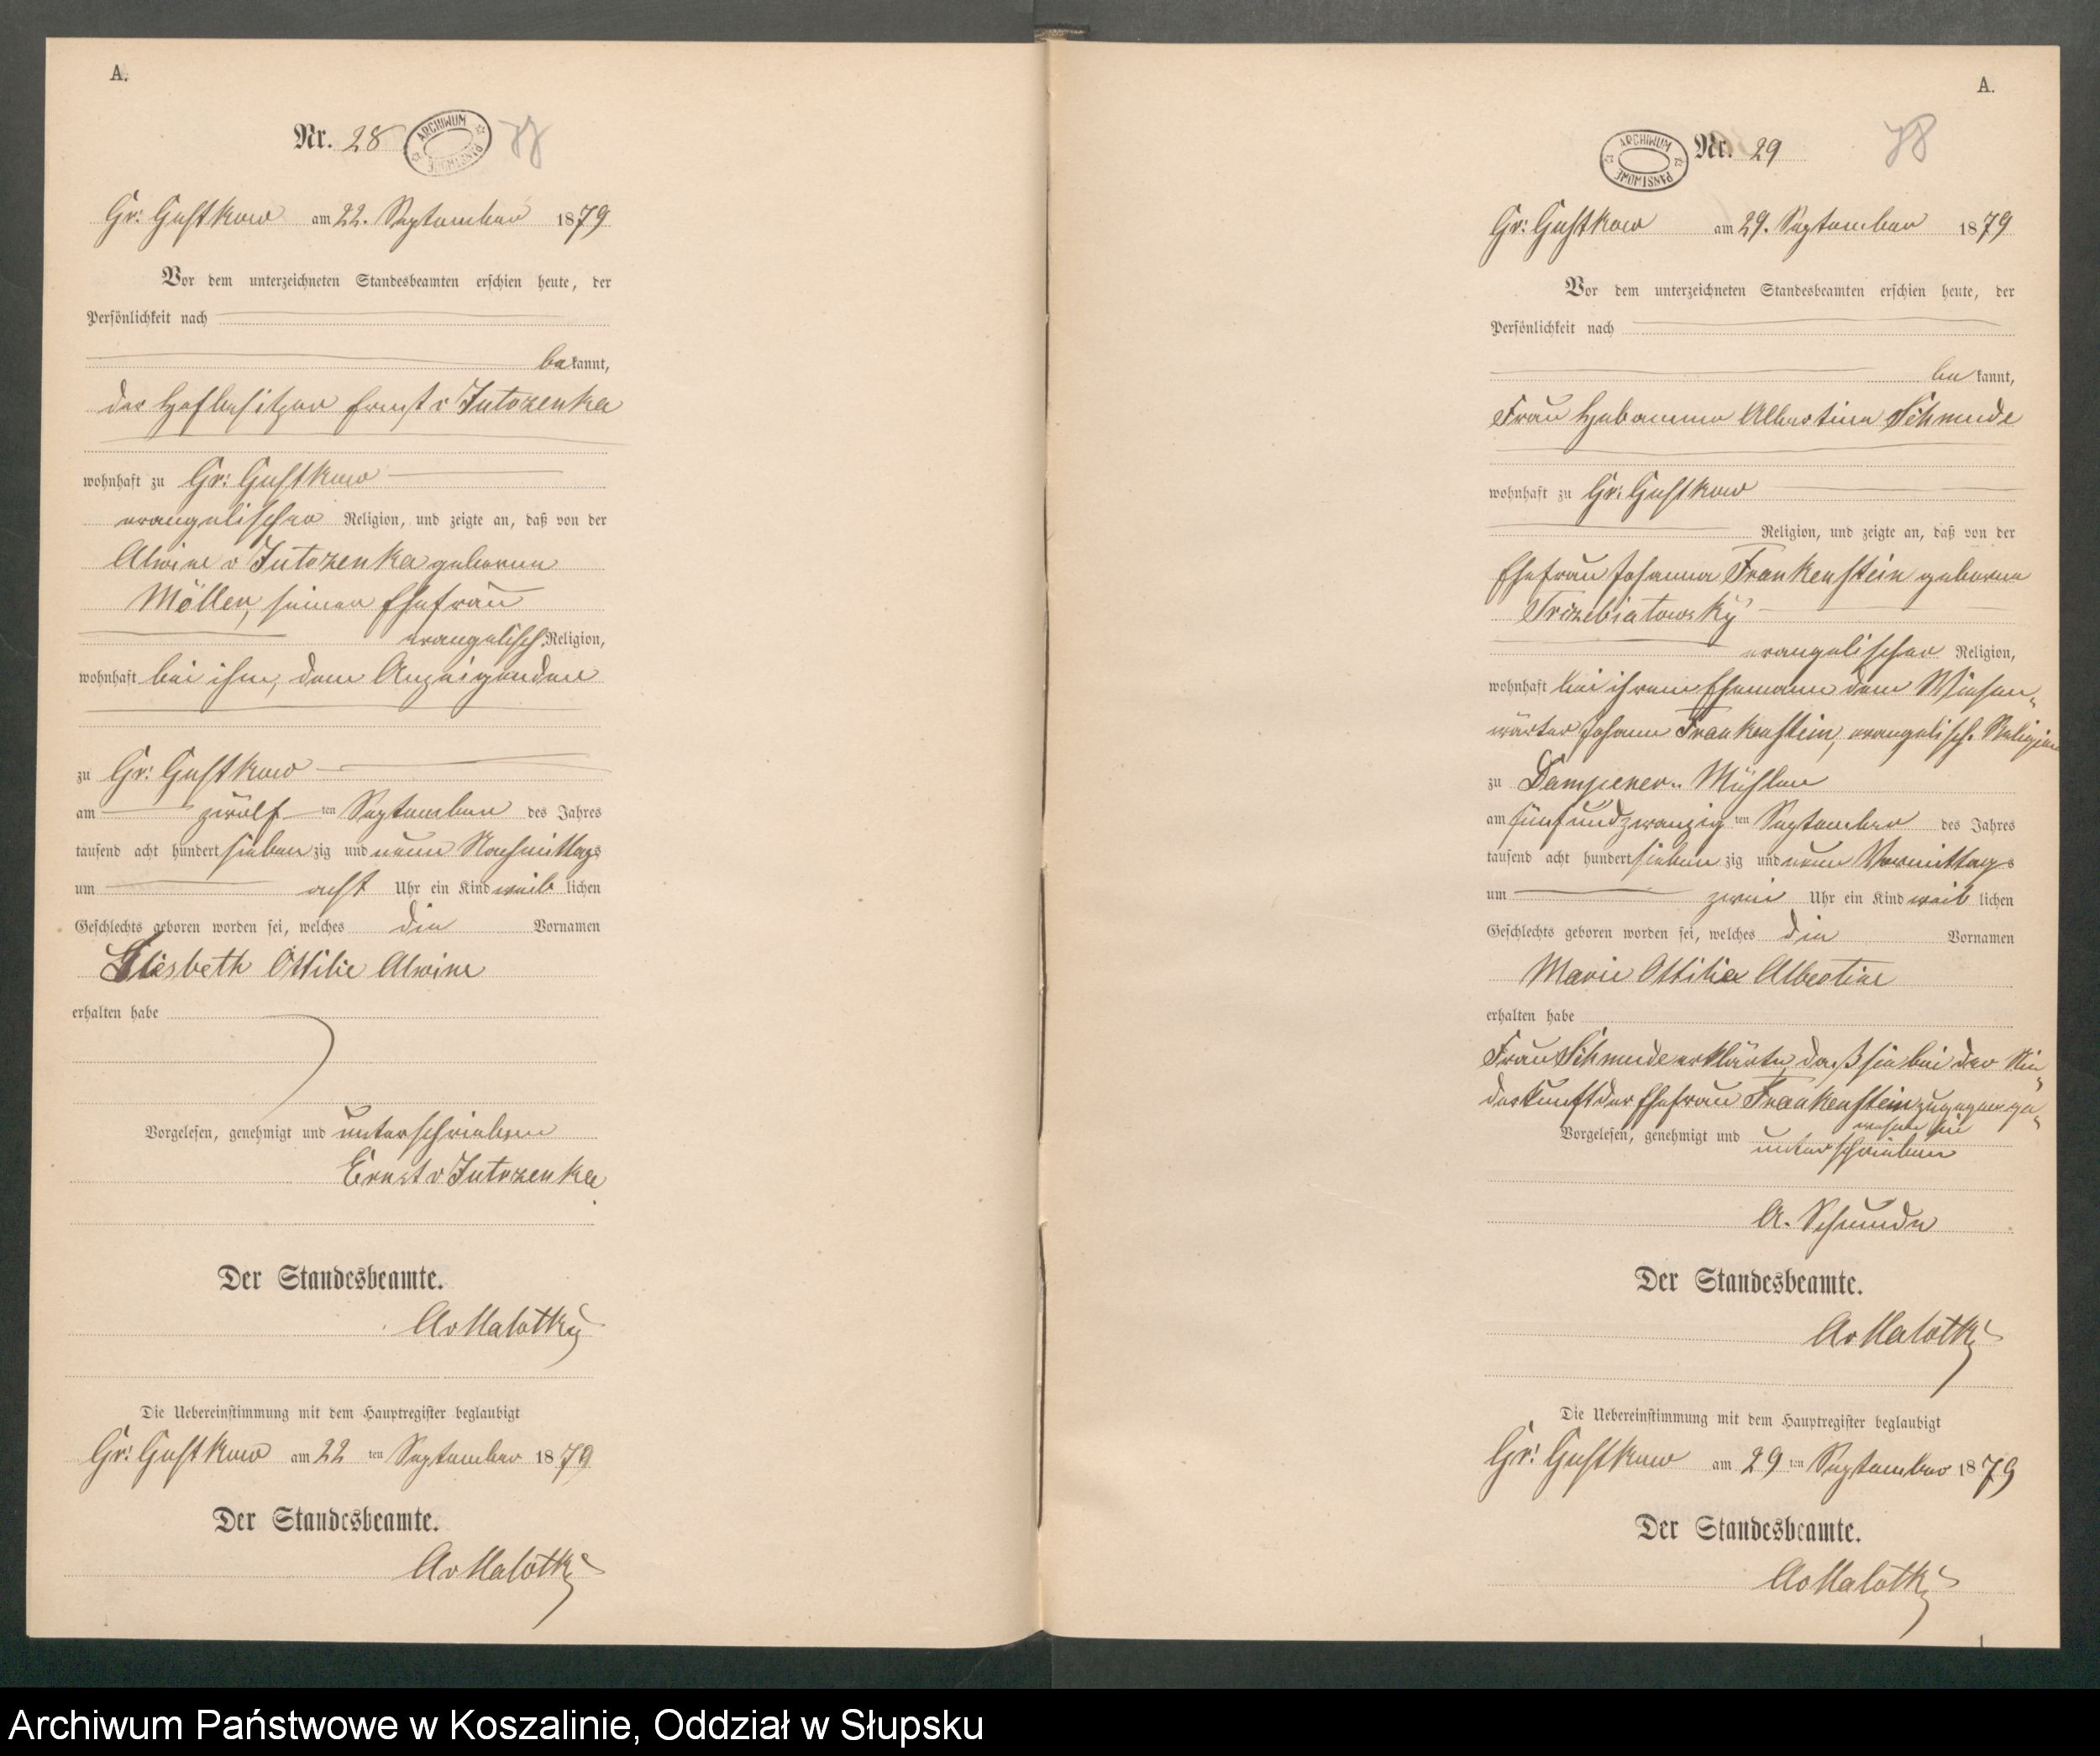 A.
Nr. 28
ARCHIWUM PAŃSTWOWE
77
Gr: Gustkow am 22. September 1879
Vor dem unterzeichneten Standesbeamten erschien heute, der
Persönlichkeit nach
bekannt,
der Hofbesitzer Ernst v Jutrzenka
wohnhaft zu Gr: Gustkow
evangelischer Religion, und zeigte an, daß von der
Alwine v Jutrzenka geborene
Möller, seiner Ehefrau
evangelisch Religion,
wohnhaft bei ihm, dem Anzeigenden
zu Gr: Gustkow
am zwölf ten September des Jahres
tausend acht hundert siebenzig und neun Nachmittags
um acht Uhr ein Kind weiblichen
Geschlechts geboren worden sei, welches die Vornamen
Elisbeth Ottilie Alwine
erhalten habe
Vorgelesen, genehmigt und unterschrieben
Ernst v Jutrzenka
Der Standesbeamte.
AvMalottky
Die Uebereinstimmung mit dem Hauptregister beglaubigt
Gr: Gustkow am 22 ten September 1879
Der Standesbeamte.
AvMalottky
A.
ARCHIWUM PAŃSTWOWE
Nr. 29
78
Gr: Gustkow am 29. September 1879
Vor dem unterzeichneten Standesbeamten erschien heute, der
Persönlichkeit nach
bekannt,
Frau Hebamme Albertine Schmude
wohnhaft zu Gr: Gustkow
Religion, und zeigte an, daß von der
Ehefrau Johanna Frankenstein geborene
Trizebiatowsky
evangelischer Religion,
wohnhaft bei ihrem Ehemann dem Wiesen-
wärter Johann Frankenstein, evangelisch. Religion
zu Dampener-Mühlen
am fünfundzwanzig ten September des Jahres
tausend acht hundert siebenzig und neun Vormittags
um zwei Uhr ein Kind weiblichen
Geschlechts geboren worden sei, welches die Vornamen
Marie Ottilie Albertine
erhalten habe
Frau Schmude erklärte, daß sie bei der Nie-
derkunft der Ehefrau Frankenstein zugegen ge-
wesen sei
Vorgelesen, genehmigt und unterschrieben
A. Schmude
Der Standesbeamte.
AvMalottky
Die Uebereinstimmung mit dem Hauptregister beglaubigt
Gr: Gustkow am 29 ten September 1879
Der Standesbeamte.
AvMalottky
Archiwum Państwowe w Koszalinie, Oddział w Słupsku